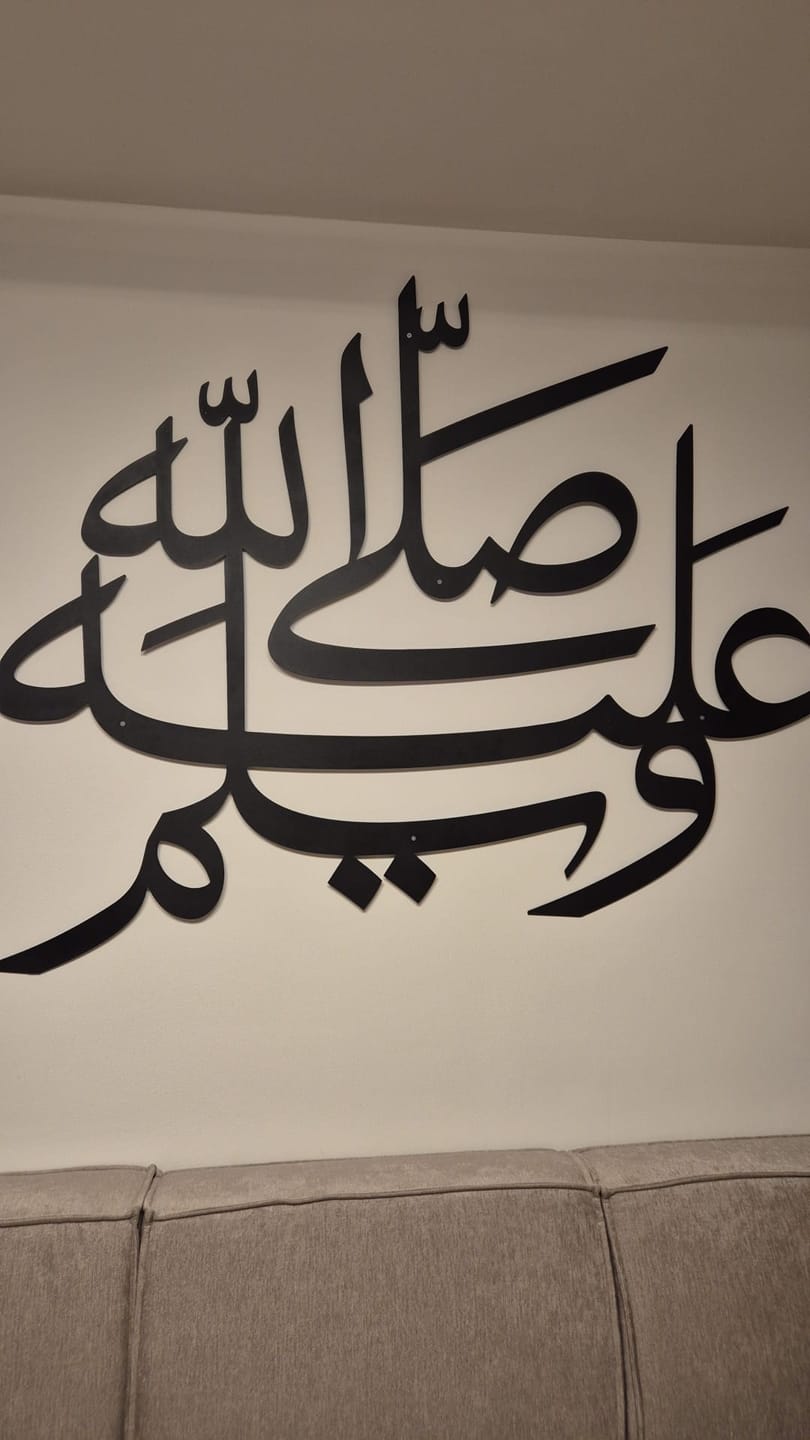 صَلَّى اللّٰه
عَلَيْه
وسلم